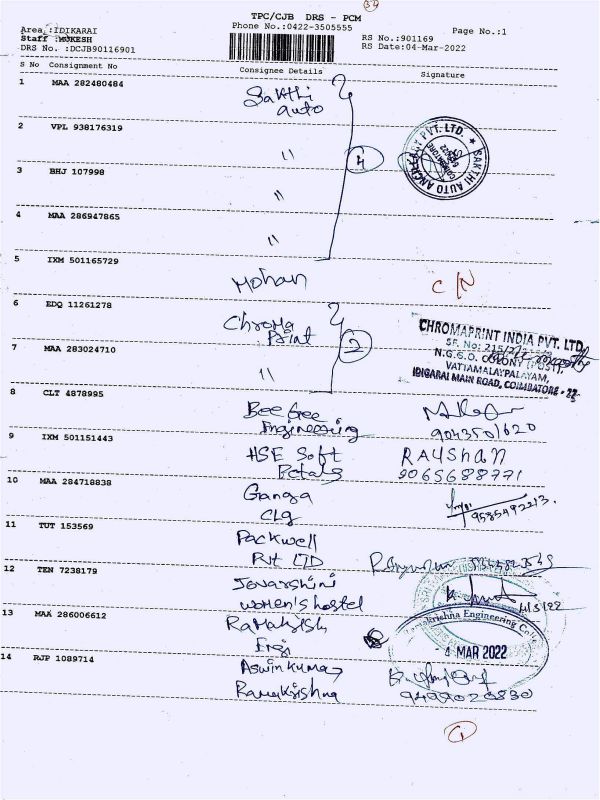 34
TPC/CJB DRS - PCM
Area :IDIKARAI Phone No.:0422-3505555 RS No.:901169 Page No.:1
Staff :MUKESH RS Date:04-Mar-2022
DRS No. :DCJB90116901
S No Consignment No Consignee Details Signature
1 MAA 282480484 Sakthi auto
2 VPL 938176319 "
4
SAKTHI AUTO ANCILLARY PVT. LTD.
COIMBATORE
3 BHJ 107998 "
4 MAA 286947865 "
5 IXM 501165729 Mohan C/N
6 EDQ 11261278 Chroma Print
2
CHROMAPRINT INDIA PVT. LTD
SF. No: 215/
N.G.G.O. COLONY (POST),
VATTAMALAYPALAYAM,
IDIGARAI MAIN ROAD, COIMBATORE - 22.
7 MAA 283024710 "
8 CLT 4878995 Bee Gee Engineering
9043501620
9 IXM 501151443 HSE Soft Petals RAUSHAN
9065688771
10 MAA 284718838 Ganga Clg
9585492213.
11 TUT 153569 Packwell Pvt LTD
12 TEN 7238179 Jenarshini women's hostel
4/3/22
13 MAA 286006612 Ramakrish Engi
Ramakrishna Engineering College
4 MAR 2022
14 RJP 1089714 Aswin kumar Ramakrishna
9499020830
1